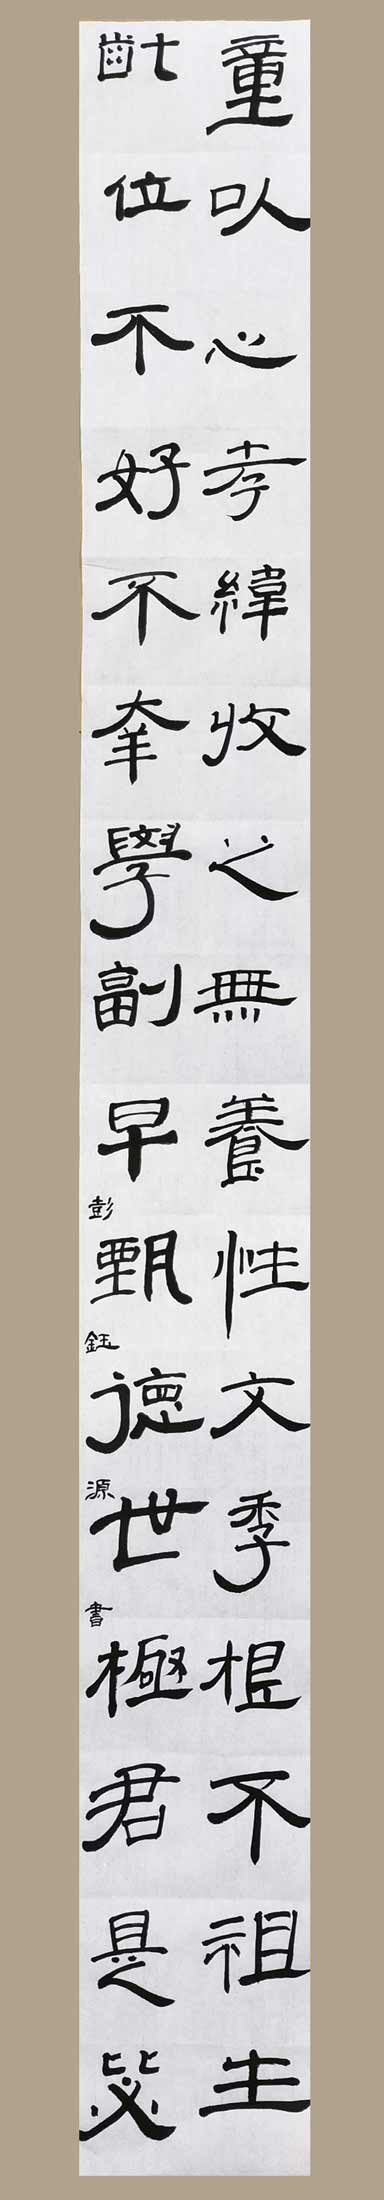 童以心孝緯收之無養性文季根不祖生
齔位不好不幸學副早甄德世極君是毖
彭鈺源書